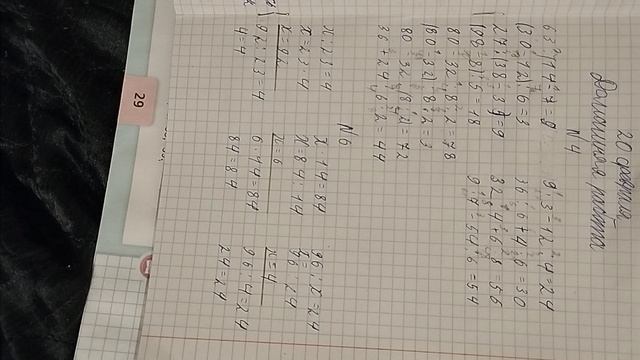 20 февраля.
Домашняя работа
№4
63:(14-7)=9 9·3-12:4=24
(30-12):6=3 36:6+4·6=30
27:(38-35)=9 32:4+6·8=56
(98-8):5=18 9·7-54:6=54
80-32:8:2=78
(80-32):8:2=3
80-32:(8:2)=72
36+24:6·2=44
№6
x:23=4 x·14=84 96:x=24
x=23·4 x=84:14 x=96:24
x=92 x=6 x=4
92:23=4 6·14=84 96:4=24
4=4 84=84 24=24
29